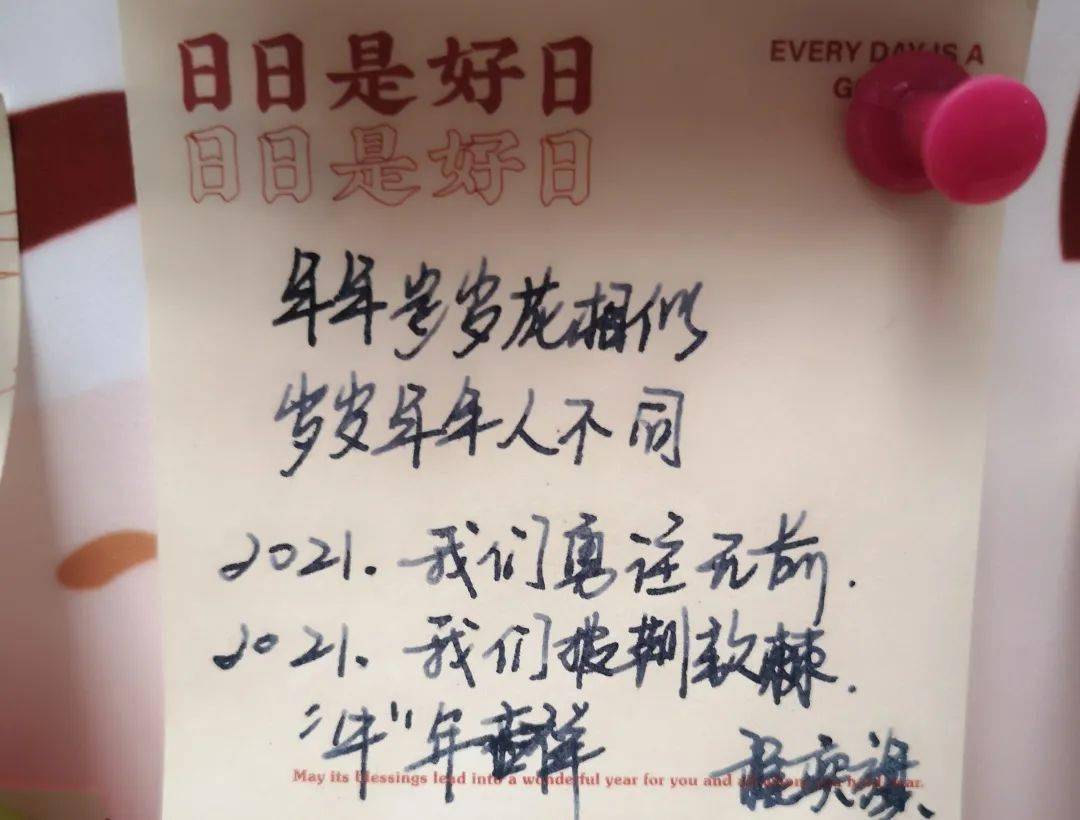 日日是好日
日日是好日
EVERY DAY IS A
G
年年岁岁花相似
岁岁年年人不同
2021.我们勇往无前.
2021.我们披荆救棘.
"牛"年吉祥
May its blessings lead into a wonderful year for you and